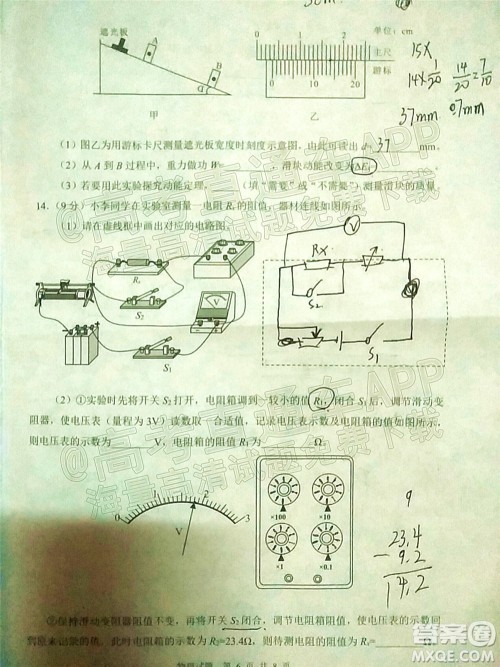 3cm
遮光板
A
B
α
甲
单位：cm
0 1 2
主尺
游标
0 10 20
乙
15X
14×1/20 14/20=7/10
37mm 0.7mm
(1) 图乙为用游标卡尺测量遮光板宽度时刻度示意图，由此可读出d= 37 mm.
(2) 从 A 到 B 过程中，重力做功 W= ，滑块动能改变为ΔEₖ=
(3) 若要用此实验探究动能定理， （填“需要”或“不需要”）测量滑块的质量
14. (9分) 小李同学在实验室测量一电阻 Rₓ 的阻值，器材连线如图所示
(1) 请在虚线框中画出对应的电路图.
Rₓ
S₂
V
S₁
V
RX
S₂
S₁
(2) ①实验时先将开关 S₂打开，电阻箱调到一较小的值 R₁，闭合 S₁后，调节滑动变
阻器，使电压表（量程为 3V）读数取一合适值，记录电压表示数及电阻箱的值如图所示，
则电压表的示数为 V，电阻箱的阻值 R₁为 Ω.
0 1 2 3
V
×100 ×10
×1 ×0.1
9
23.4
- 9.2
14.2
②保持滑动变阻器阻值不变，再将开关 S₂闭合，调节电阻箱阻值，使电压表的示数回
到原来记录的值，此时电阻箱示数为R₂=23.4Ω，则待测电阻的阻值 Rₓ= Ω.
物理试题 第 6 页 共 8 页
@高考直通车APP
海量高清试题免费下载
@高考直通车APP
海量高清试题免费下载
答案圈
MXQE.COM